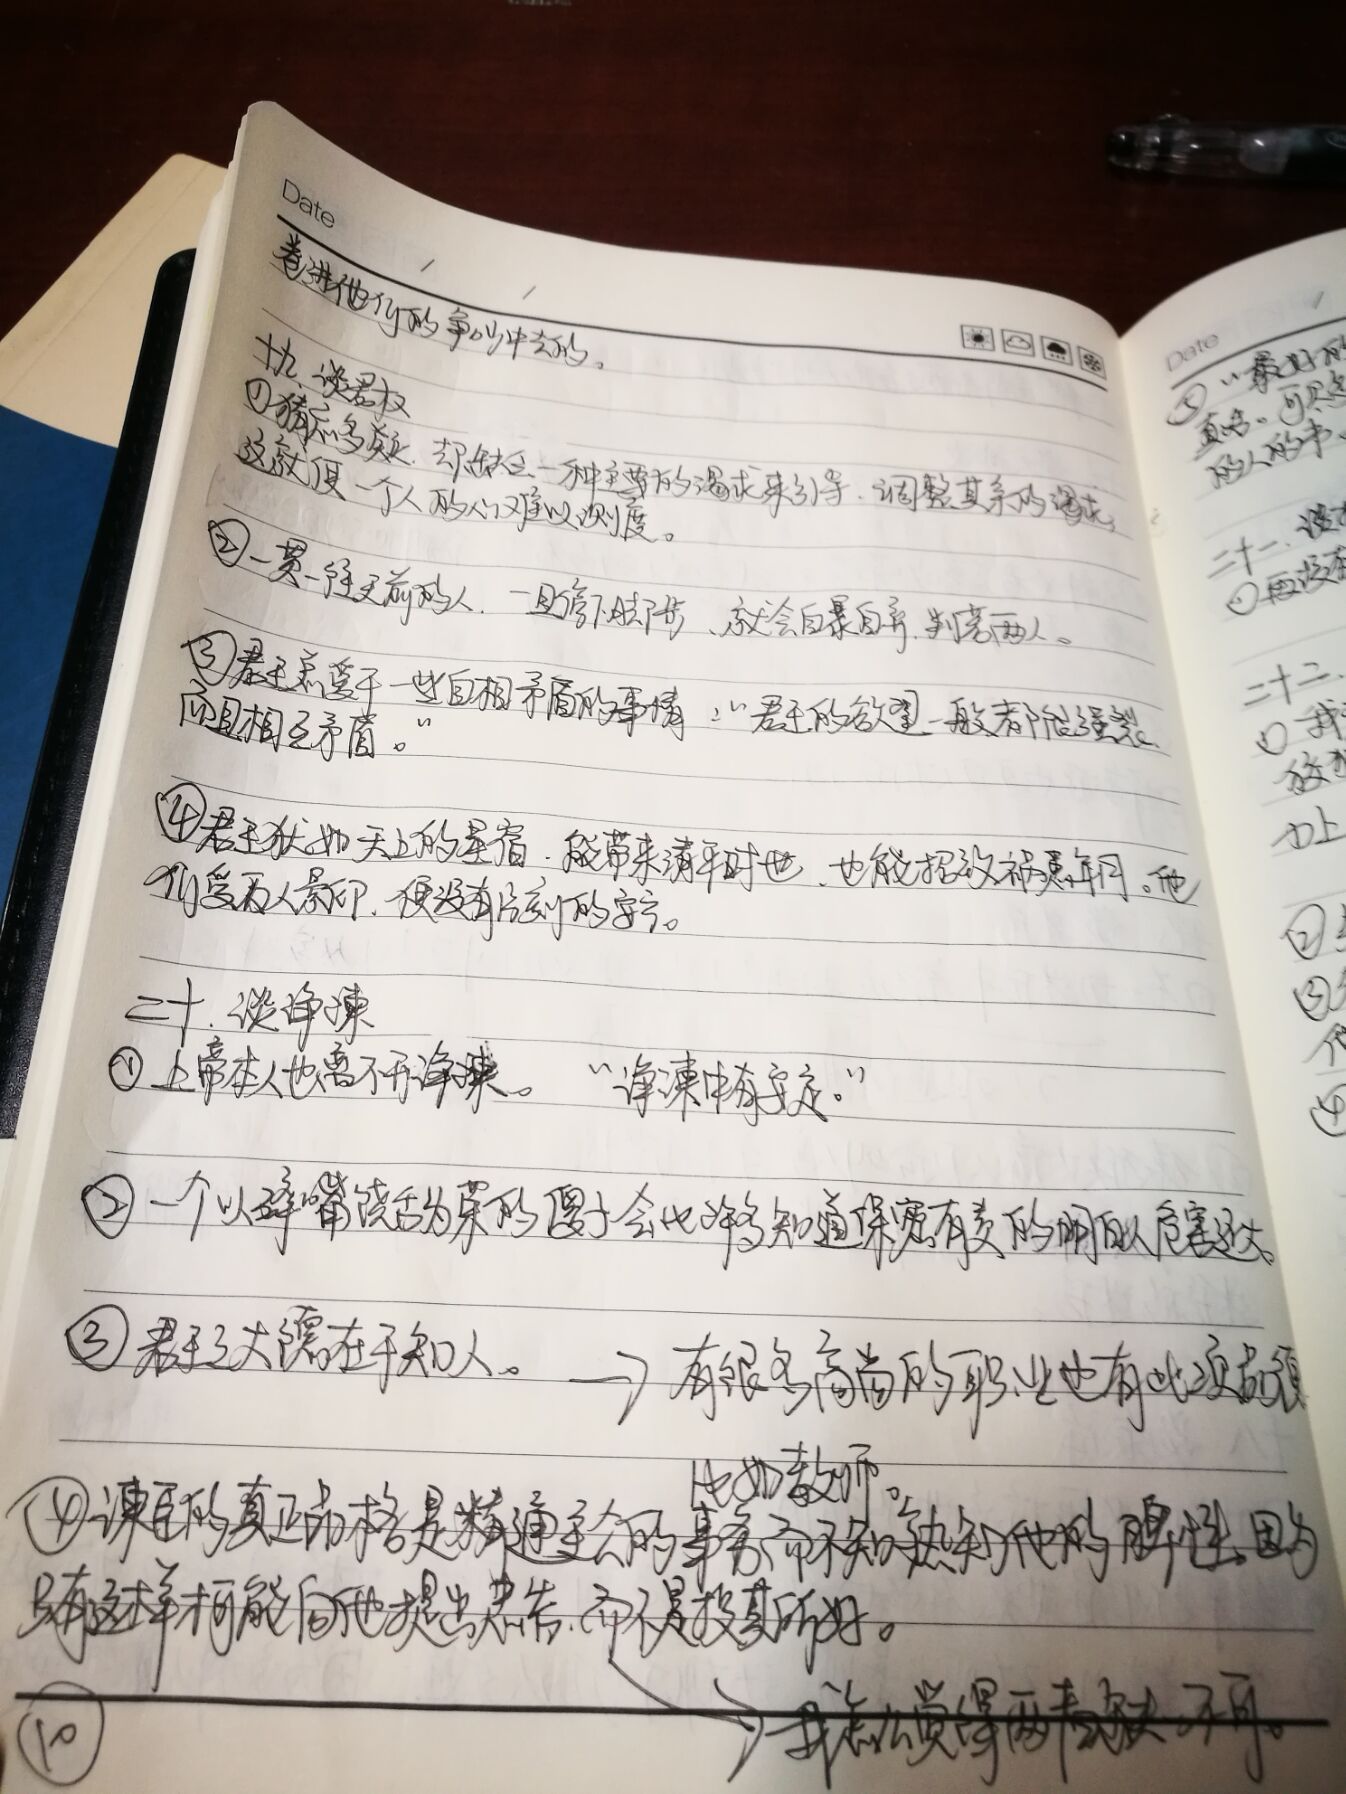 Date
卷进他们的争吵中去的。
十九. 谈君权
①猜忌多疑, 却缺乏一种主要的渴求来引导、调整其余的渴求,
这就使一个人的心难以测度。
②一贯一往无前的人, 一旦停下脚步、就会自暴自弃, 判若两人。
③君王总爱干一些自相矛盾的事情 :"君王的欲望一般都很强烈
而且相互矛盾。"
④君王犹如天上的星宿, 能带来清平时世、也能招致祸患年月。他
们受万人景仰, 便没有片刻的安宁。
二十. 谈诤谏
①上帝本人也离不开诤谏。 "诤谏中有安定。"
②一个以碎嘴饶舌为荣的傻子会比许多知道保密有责的明白人危害还大。
③君王之大德在于知人。 → 有很多高尚的职业也有此项品质
比如教师。
④谏臣的真正品格是精通主公的事务而不知熟知他的脾性, 因为
只有这样才可能向他提出忠告, 而不是投其所好。
→我怎么觉得两者缺一不可。
10
Date
⑤"最好的
的人的书
二十一. 谈
①再没有
二十二.
①我
切上
②
③
④